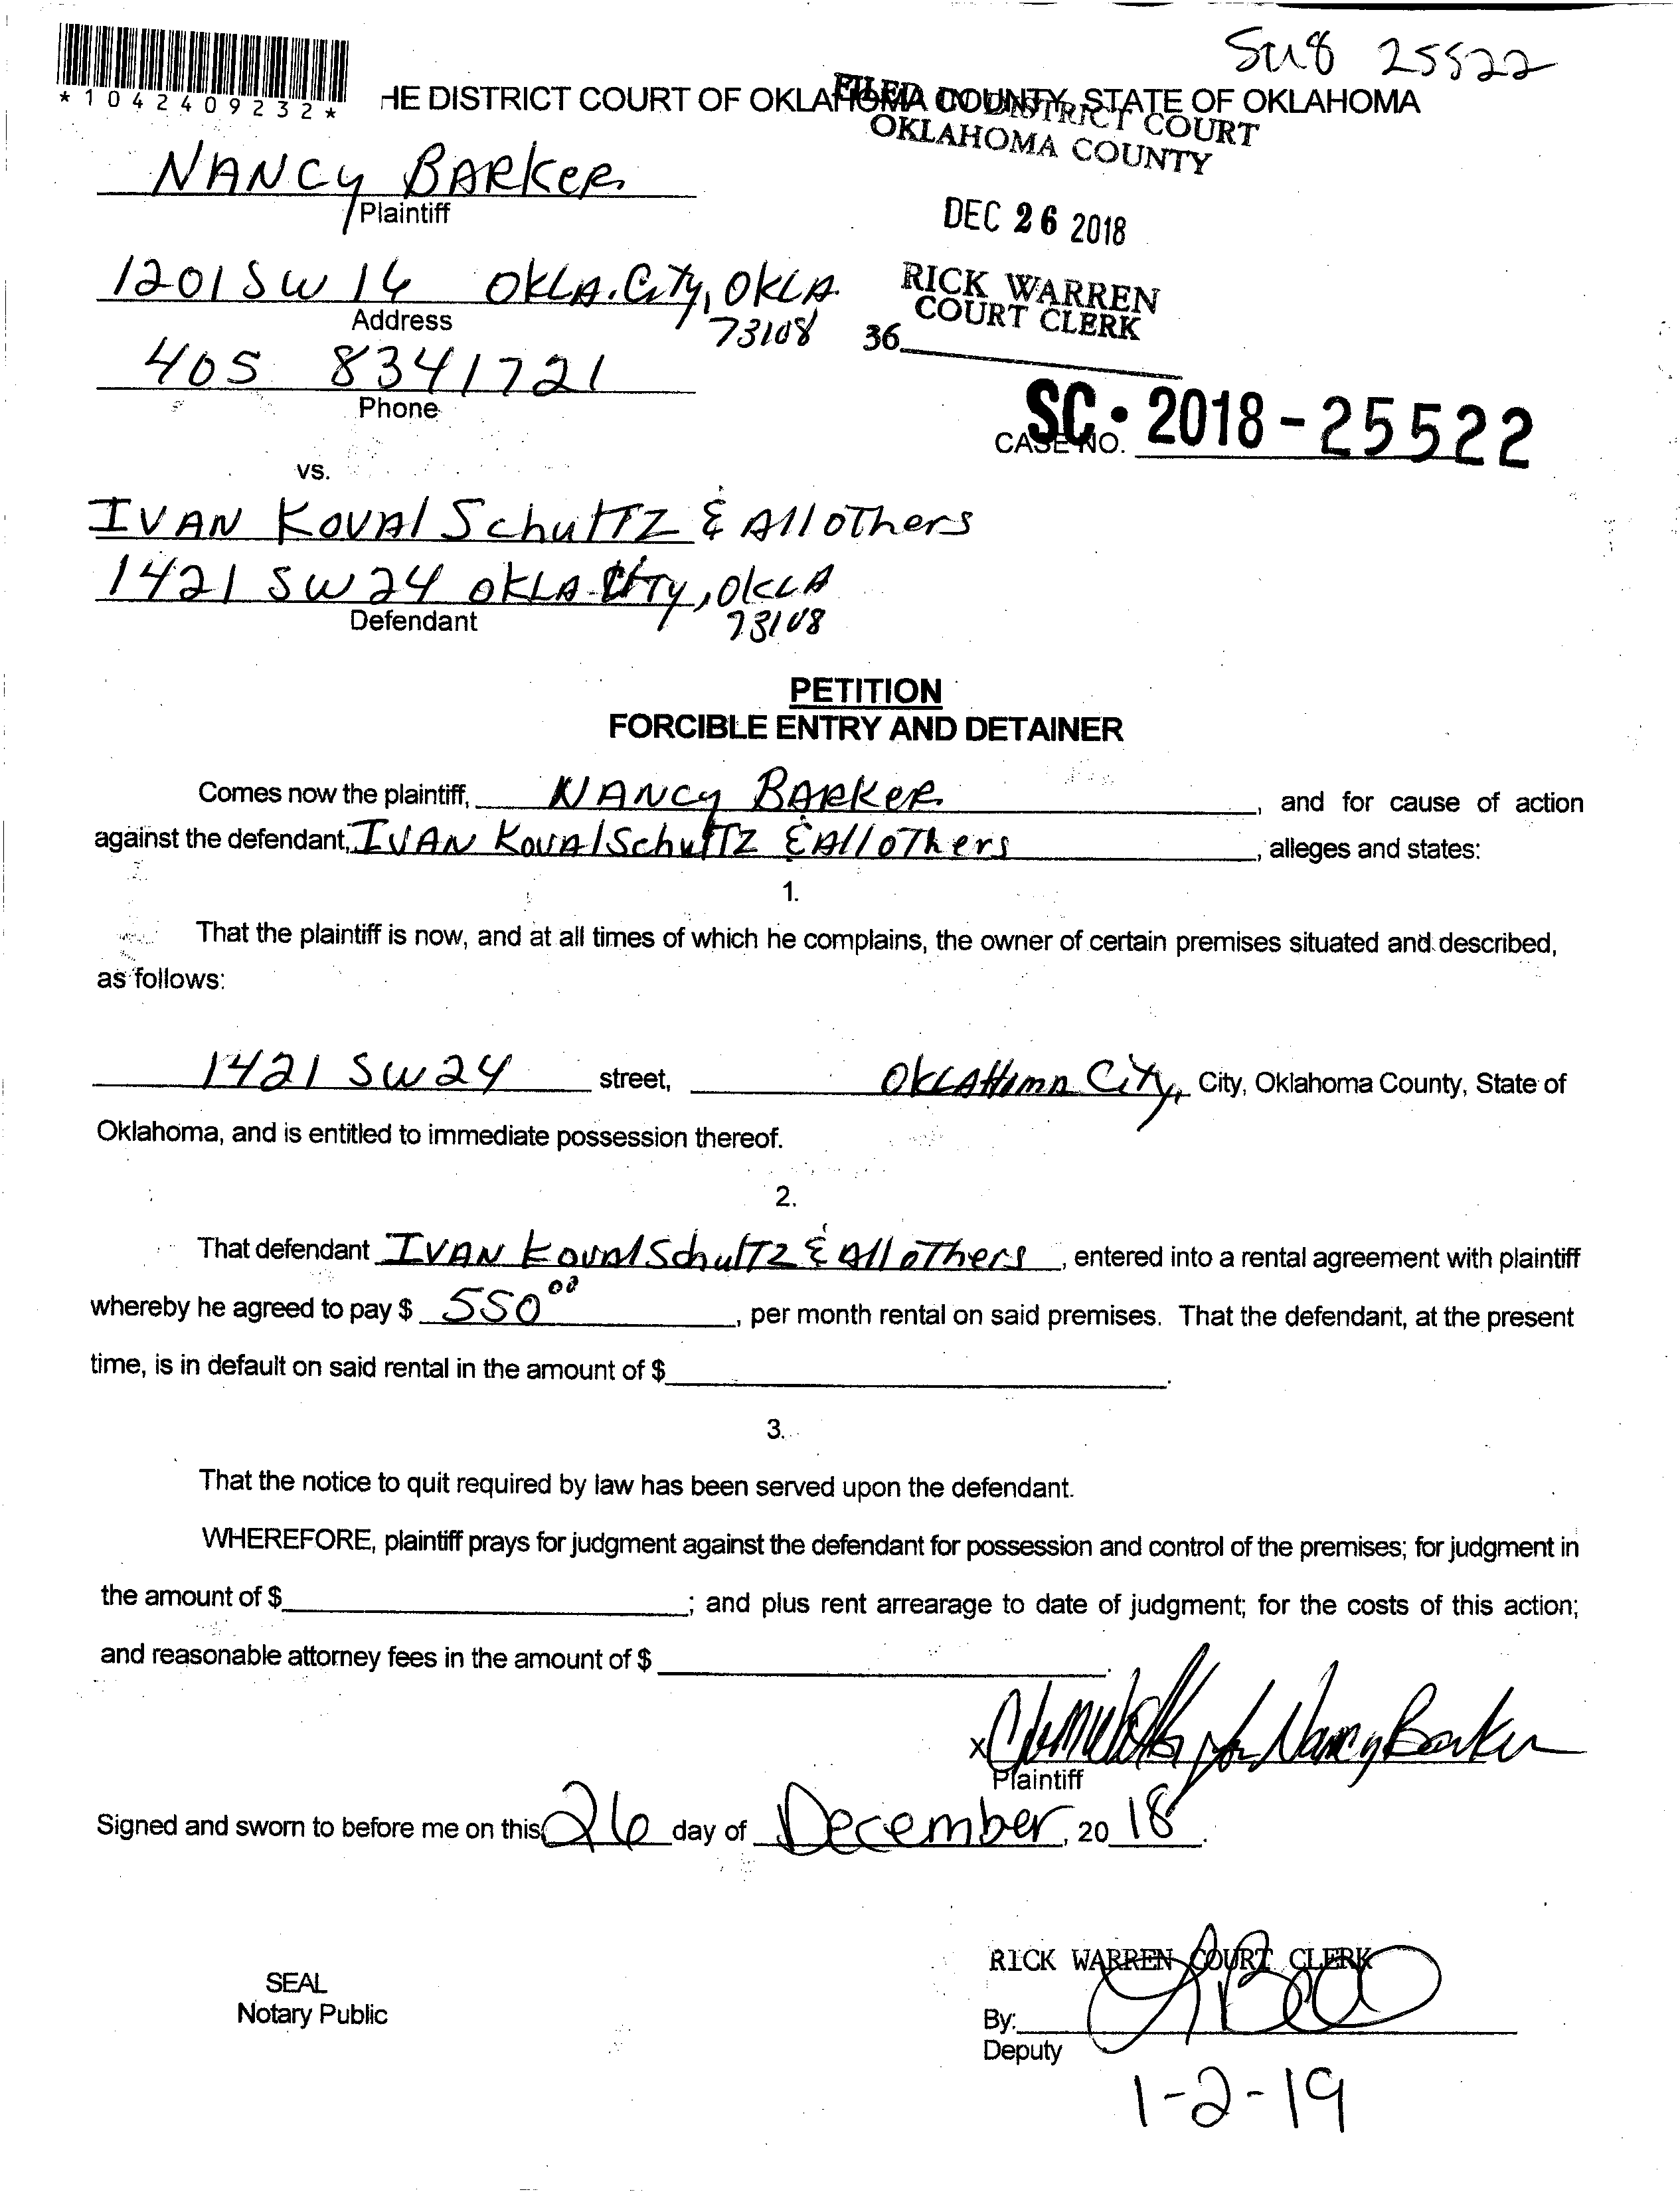 Su8 25522
*1042409232*
HE DISTRICT COURT OF OKLAHOMA COUNTY, STATE OF OKLAHOMA
FILED IN DISTRICT COURT
OKLAHOMA COUNTY
NANCY BARKER
Plaintiff
DEC 26 2018
1201 SW 16 OKLA. City, OKLA.
73108
Address
RICK WARREN
COURT CLERK
36
405 8341721
Phone
SC-2018-25522
CASE NO.
vs.
IVAN KOVAl SchulTZ & All oThers
1421 SW 24 OKLA-CiTy, OKLA
73108
Defendant
PETITION
FORCIBLE ENTRY AND DETAINER
Comes now the plaintiff, NANCY BARKER, and for cause of action
against the defendant, IVAN KovalSchulTZ & All oThers, alleges and states:
1.
That the plaintiff is now, and at all times of which he complains, the owner of certain premises situated and described,
as follows:
1421 SW 24 street, OKLAHoma City, City, Oklahoma County, State of
Oklahoma, and is entitled to immediate possession thereof.
2.
That defendant IVAN KovalSchulTZ & All oThers, entered into a rental agreement with plaintiff
whereby he agreed to pay $ 550 00, per month rental on said premises. That the defendant, at the present
time, is in default on said rental in the amount of $.
3.
That the notice to quit required by law has been served upon the defendant.
WHEREFORE, plaintiff prays for judgment against the defendant for possession and control of the premises; for judgment in
the amount of $; and plus rent arrearage to date of judgment; for the costs of this action;
and reasonable attorney fees in the amount of $.
x for Nancy Barker
Plaintiff
Signed and sworn to before me on this 26 day of December, 20 18.
RICK WARREN COURT CLERK
SEAL
Notary Public
By:
Deputy
1-2-19